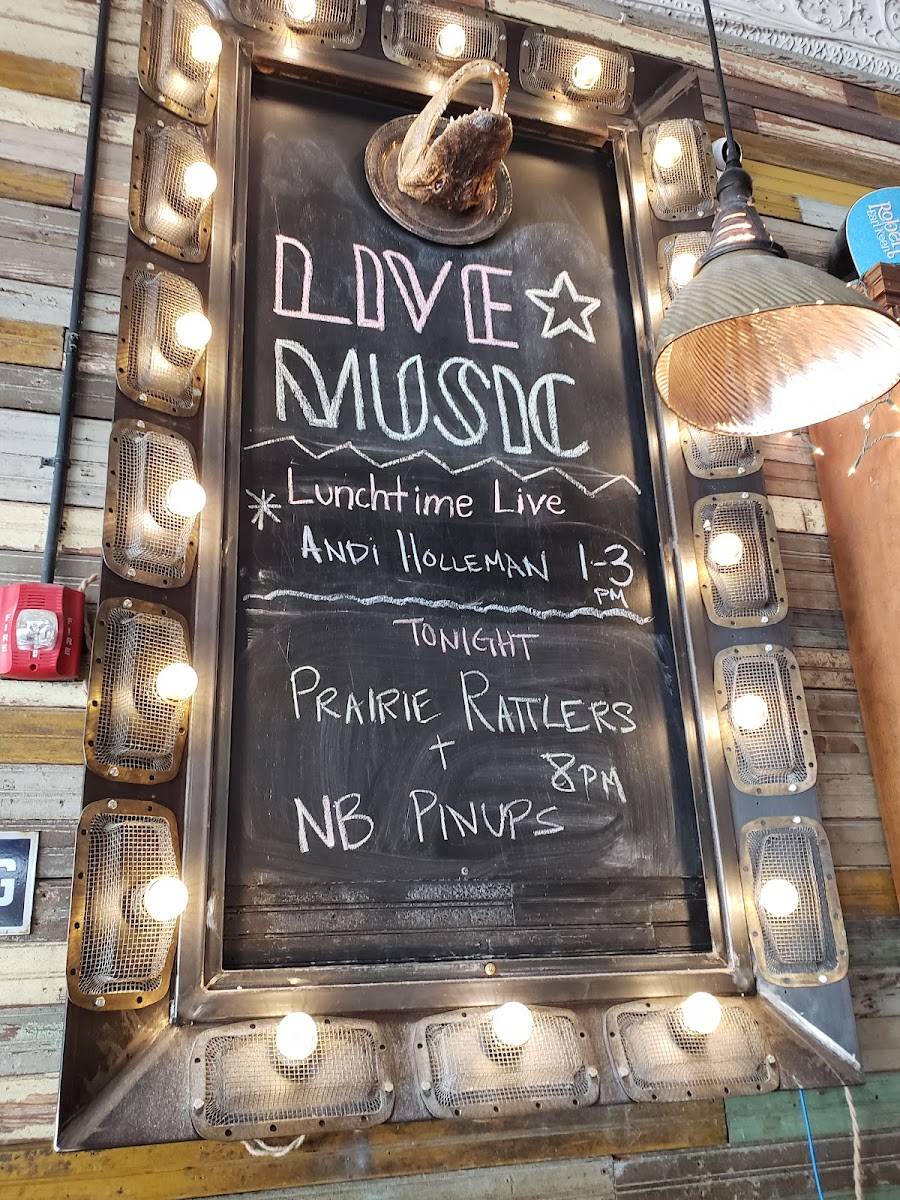 LIVE
MUSIC
Lunchtime Live
ANDI HOLLEMAN 1-3
PM
TONIGHT
PRAIRIE RATTLERS
+
8PM
NB PINUPS
FIRE
FIRE
Robert
Earl Keen
G